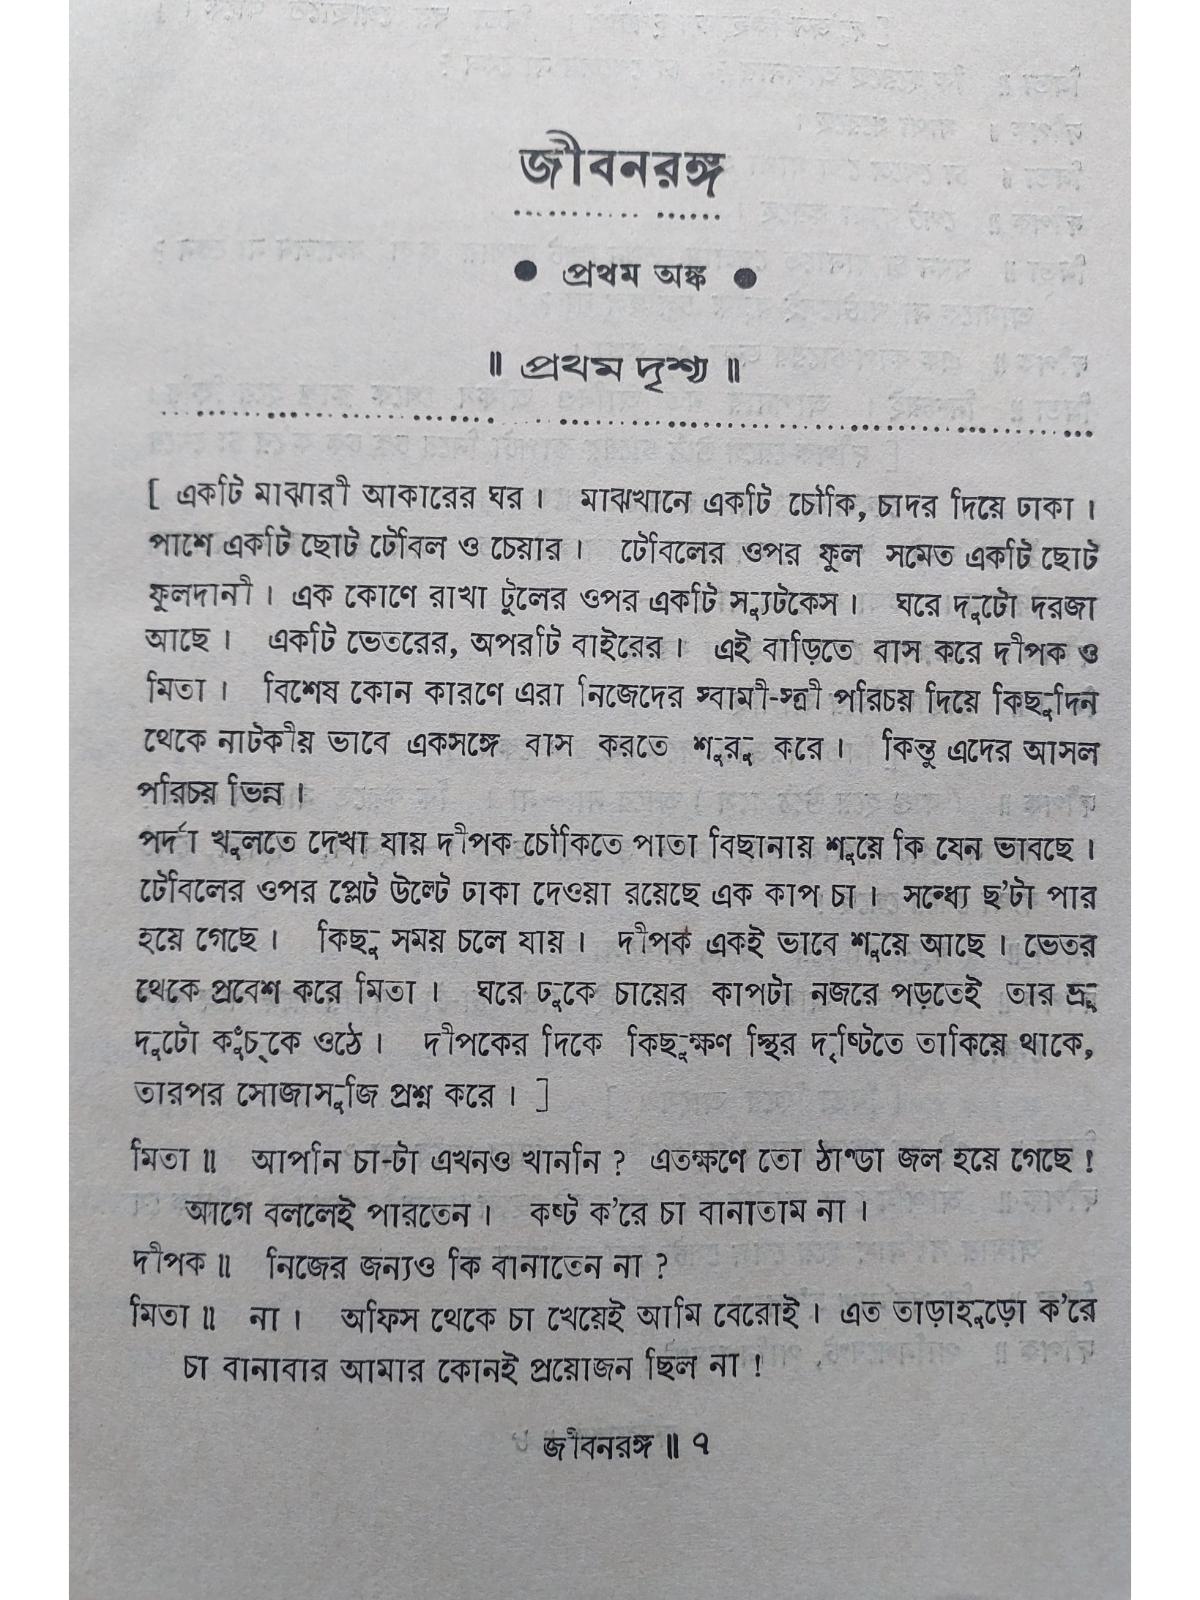 জীবনরঙ্গ
● প্রথম অঙ্ক ●
॥ প্রথম দৃশ্য ॥
[ একটি মাঝারী আকারের ঘর । মাঝখানে একটি চৌকি, চাদর দিয়ে ঢাকা ।
পাশে একটি ছোট টেবিল ও চেয়ার । টেবিলের ওপর ফুল সমেত একটি ছোট
ফুলদানী । এক কোণে রাখা টুলের ওপর একটি স্যুটকেস । ঘরে দুটো দরজা
আছে । একটি ভেতরের, অপরটি বাইরের । এই বাড়িতে বাস করে দীপক ও
মিতা । বিশেষ কোন কারণে এরা নিজেদের স্বামী-স্ত্রী পরিচয় দিয়ে কিছুদিন
থেকে নাটকীয় ভাবে একসঙ্গে বাস করতে শুরু করে । কিন্তু এদের আসল
পরিচয় ভিন্ন ।
পর্দা খুলতে দেখা যায় দীপক চৌকিতে পাতা বিছানায় শুয়ে কি যেন ভাবছে ।
টেবিলের ওপর প্লেট উল্টে ঢাকা দেওয়া রয়েছে এক কাপ চা । সন্ধ্যে ছ'টা পার
হয়ে গেছে । কিছু সময় চলে যায় । দীপক একই ভাবে শুয়ে আছে । ভেতর
থেকে প্রবেশ করে মিতা । ঘরে ঢুকে চায়ের কাপটা নজরে পড়তেই তার ভ্রু
দুটো কুঁচ্‌কে ওঠে । দীপকের দিকে কিছুক্ষণ স্থির দৃষ্টিতে তাকিয়ে থাকে,
তারপর সোজাসুজি প্রশ্ন করে । ]
মিতা ॥ আপনি চা-টা এখনও খাননি ? এতক্ষণে তো ঠাণ্ডা জল হয়ে গেছে !
আগে বললেই পারতেন । কষ্ট ক'রে চা বানাতাম না ।
দীপক ॥ নিজের জন্যও কি বানাতেন না ?
মিতা ॥ না । অফিস থেকে চা খেয়েই আমি বেরোই । এত তাড়াহুড়ো ক'রে
চা বানাবার আমার কোনই প্রয়োজন ছিল না !
জীবনরঙ্গ ॥ ৭